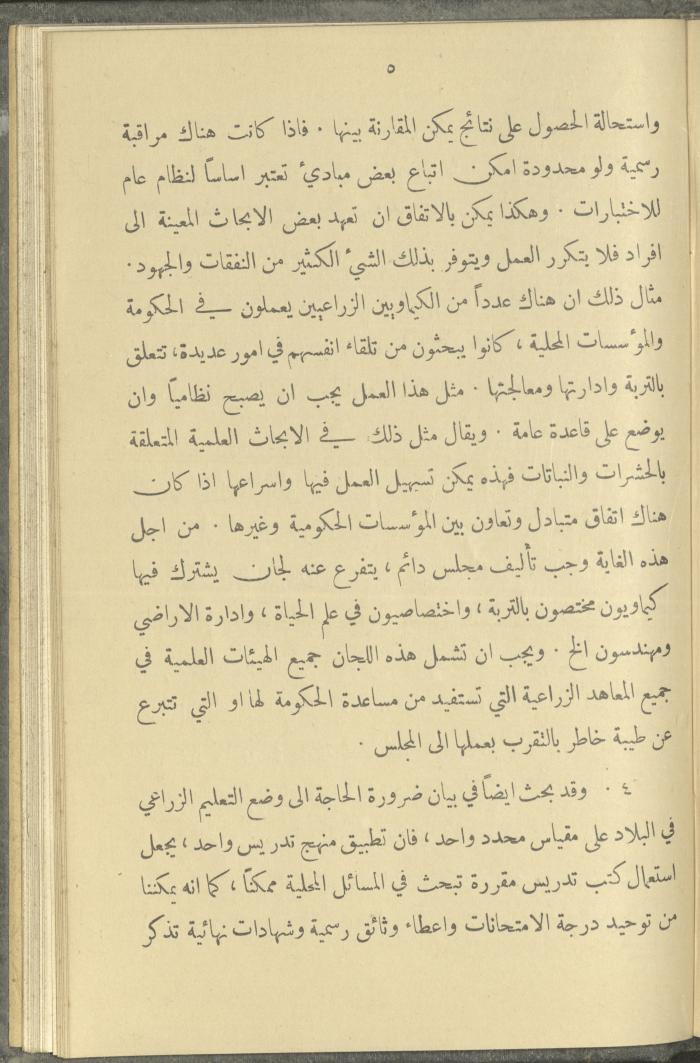 ٥
واستحالة الحصول على نتائج يمكن المقارنة بينها . فاذا كانت هناك مراقبة
رسمية ولو محدودة امكن اتباع بعض مبادئ تعتبر اساساً لنظام عام
للاختبارات . وهكذا يمكن بالاتفاق ان تعهد بعض الابحاث المعينة الى
افراد فلا يتكرر العمل ويتوفر بذلك الشيء الكثير من النفقات والجهود .
مثال ذلك ان هناك عدداً من الكيماويين الزراعيين يعملون في الحكومة
والمؤسسات المحلية ، كانوا يبحثون من تلقاء انفسهم في امور عديدة، تتعلق
بالتربة وادارتها ومعالجتها . مثل هذا العمل يجب ان يصبح نظامياً وان
يوضع على قاعدة عامة . ويقال مثل ذلك في الابحاث العلمية المتعلقة
بالحشرات والنباتات فهذه يمكن تسهيل العمل فيها واسراعها اذا كان
هناك اتفاق متبادل وتعاون بين المؤسسات الحكومية وغيرها . من اجل
هذه الغاية وجب تأليف مجلس دائم ، يتفرع عنه لجان يشترك فيها
كيماويون مختصون بالتربة ، واختصاصيون في علم الحياة ، وادارة الاراضي
ومهندسون الخ . ويجب ان تشمل هذه اللجان جميع الهيئات العلمية في
جميع المعاهد الزراعية التي تستفيد من مساعدة الحكومة لها او التي تتبرع
عن طيبة خاطر بالتقرب بعملها الى المجلس .
٤ . وقد بحث ايضاً في بيان ضرورة الحاجة الى وضع التعليم الزراعي
في البلاد على مقياس محدد واحد ، فان تطبيق منهج تدريس واحد ، يجعل
استعمال كتب تدريس مقررة تبحث في المسائل المحلية ممكناً ، كما انه يمكننا
من توحيد درجة الامتحانات واعطاء وثائق رسمية وشهادات نهائية تذكر